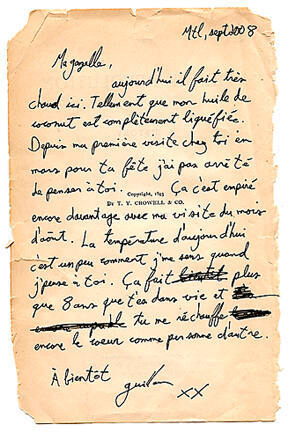 Mtl, sept 2008
Ma gazelle,
aujourd'hui il fait très
chaud ici. Tellement que mon huile de
coconut est complètement liquéfiée.
Depuis ma première visite chez toi en
mars pour ta fête j'ai pas arrêté
de penser à toi. Ça c'est empiré
Copyright, 1895
By T. Y. CROWELL & CO.
encore davantage avec ma visite du mois
d'août. La température d'aujourd'hui
c'est un peu comment j'me sens quand
j'pense à toi. Ça fait plus
que 8 ans que t'es dans vie et
tu me réchauffe
encore le coeur comme personne d'autre.
À bientôt
XX